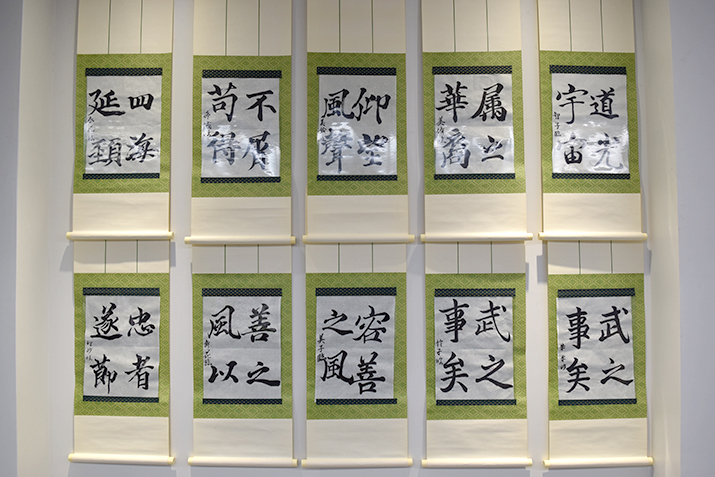 道光
宇宙
属之
華裔
仰望
風聲
不屑
苟得
四海
延頸
武之
事矣
武之
事矣
容善
之風
善之
風以
忠者
遂節